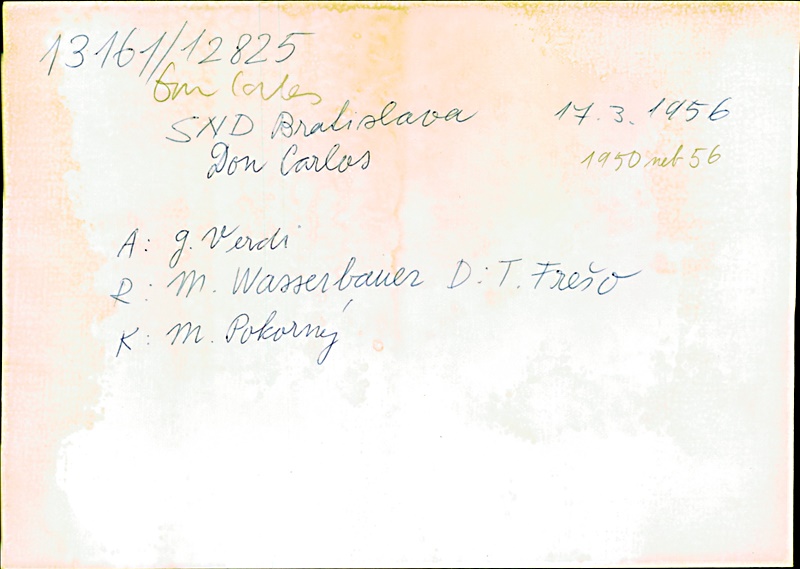 13161/12825
Don Carlos
SND Bratislava 17. 3. 1956
Don Carlos 1950 neb 56
A: G. Verdi
R: M. Wasserbauer D: T. Frešo
K: M. Pokorný